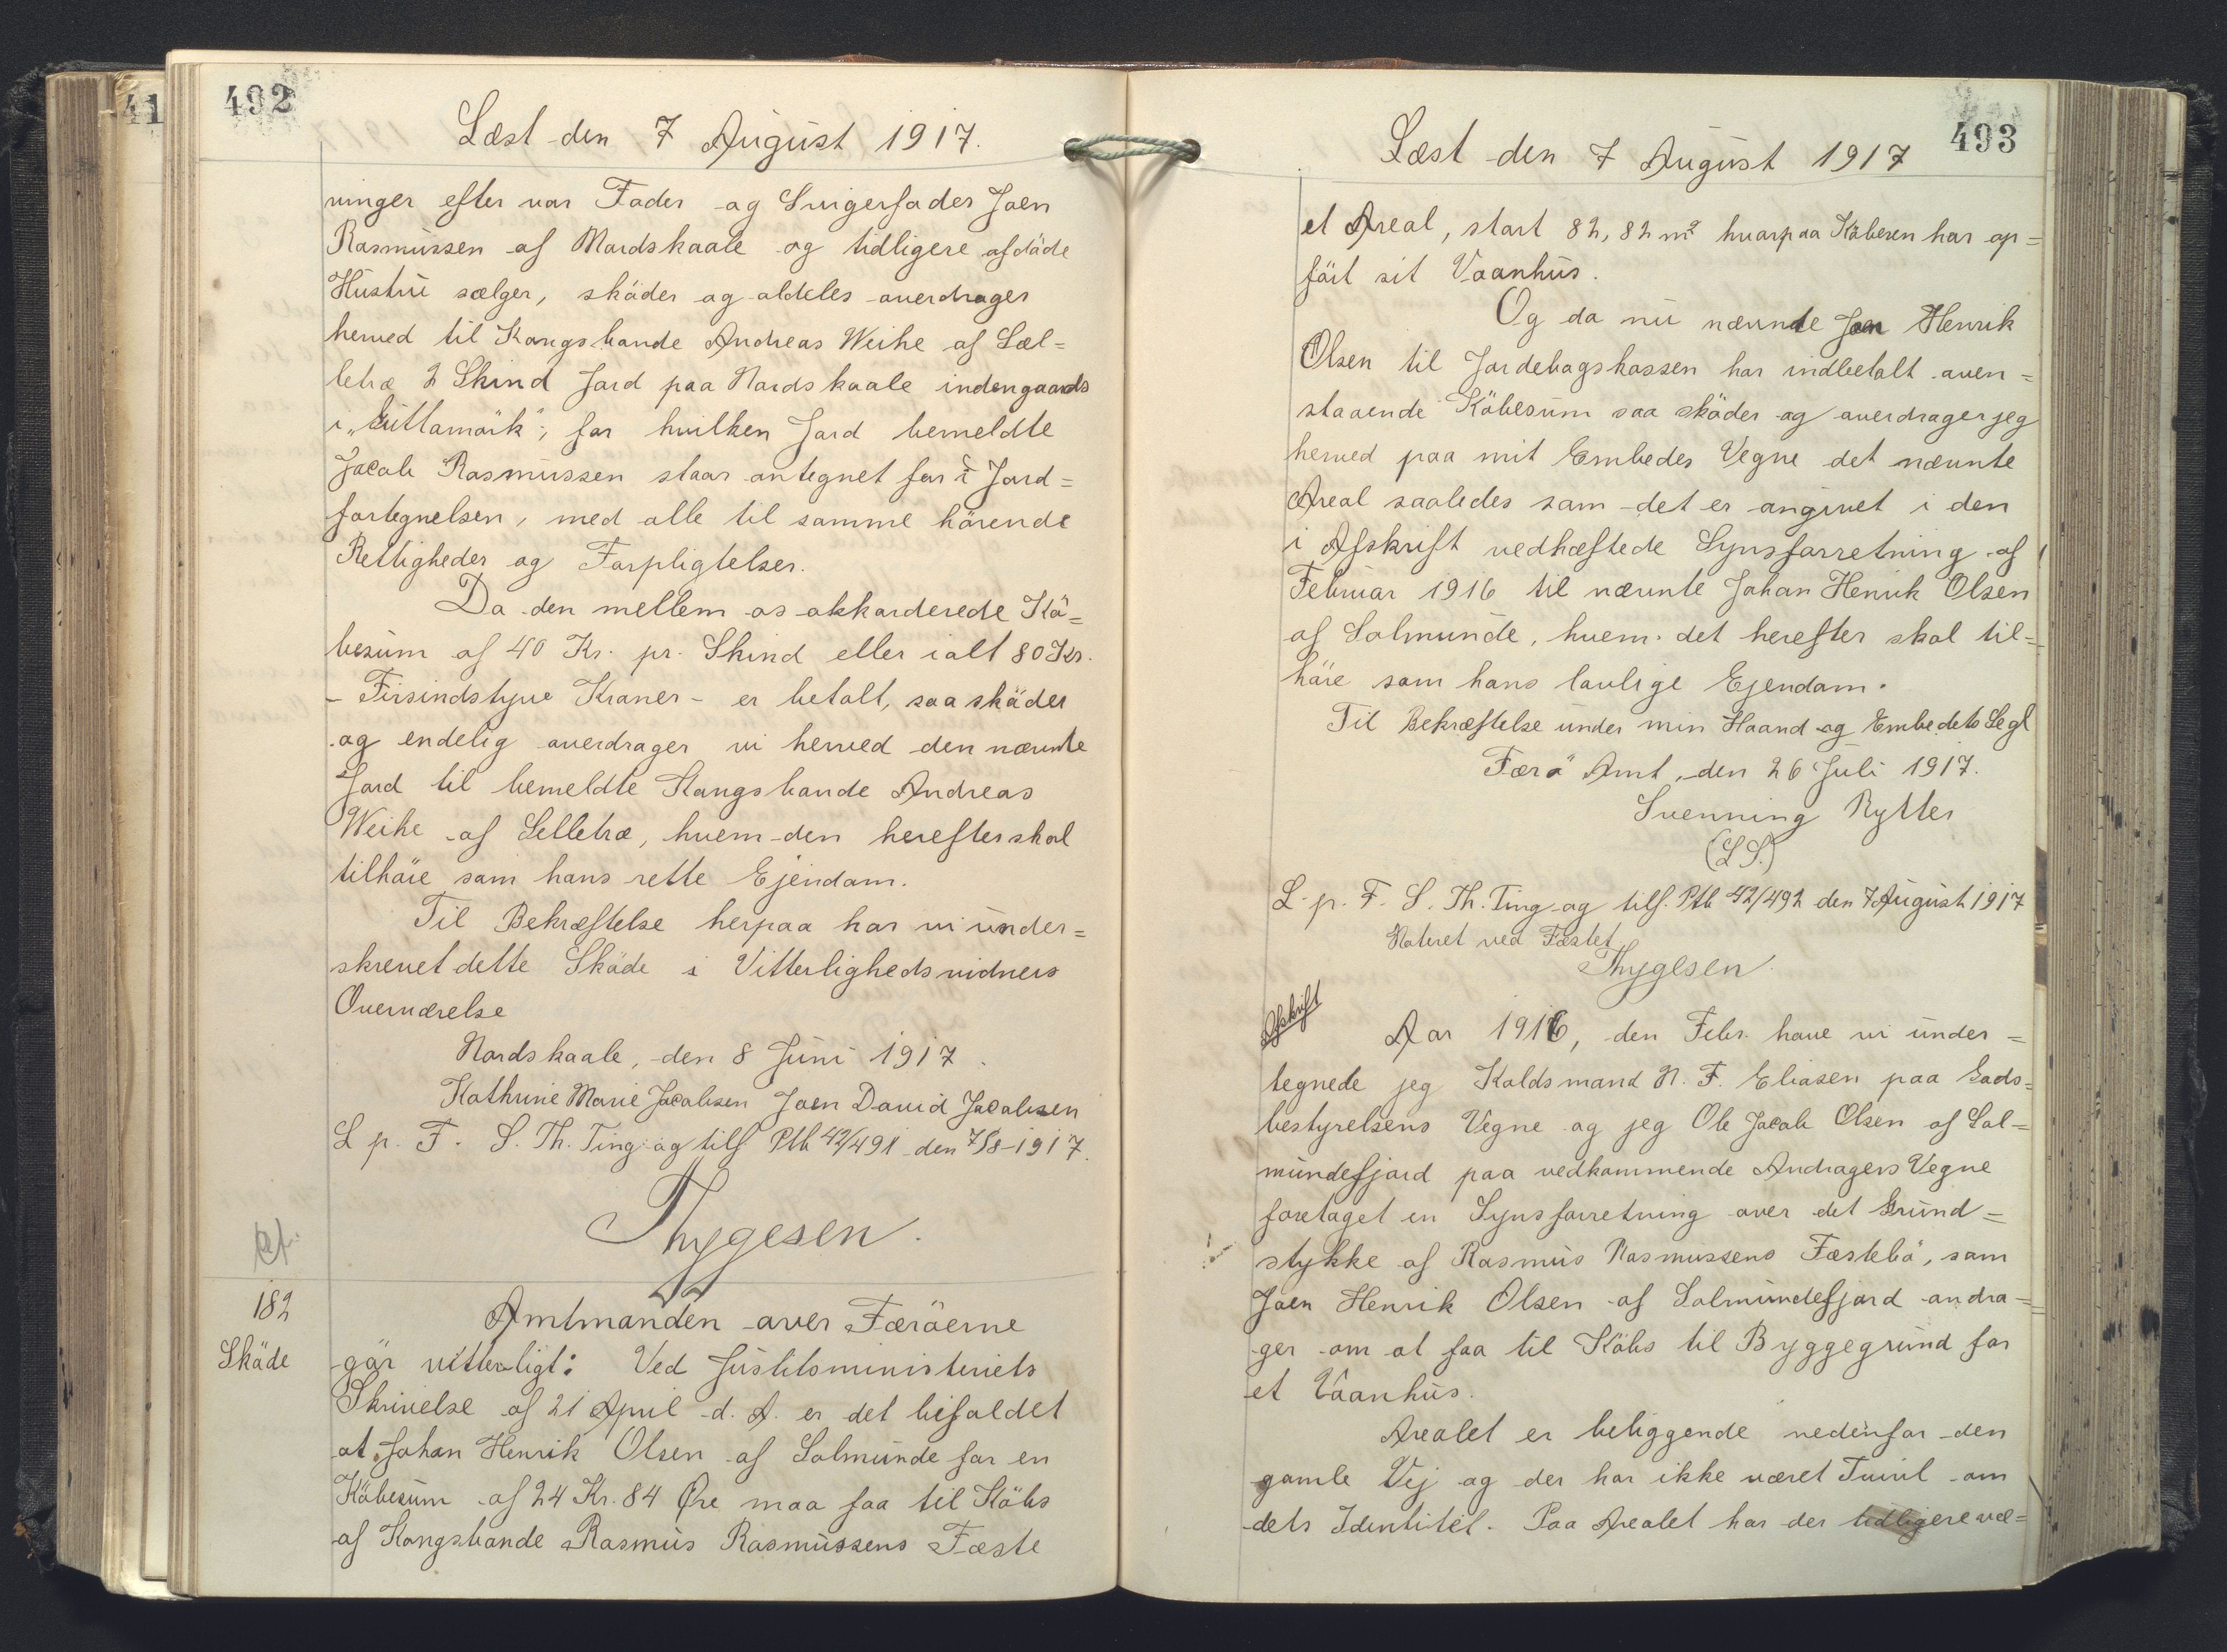 492
Læst den 7 August 1917.
ninger efter vor Fader og Svigerfader Joen
Rasmussen af Nordskaale og tidligere afdöde
Hustru sælger, sköder og aldeles overdrager
herved til Kongsbonde Andreas Weihe af Sel=
letræ 2 Skind Jord paa Nordskaale indengaards
i „Guttamörk", for hvilken Jord bemeldte
Jacob Rasmussen staar antegnet for i Jord=
fortegnelsen, med alle til samme hörende
Rettigheder og Forpligtelser.
Da den mellem os akkorderede Kö=
besum af 40 Kr. pr. Skind eller ialt 80 Kr.
- Firsindstyve Kroner - er betalt, saa sköder
og endelig overdrager vi herved den nævnte
Jord til bemeldte Kongsbonde Andreas
Weihe af Selletræ, hvem den herefter skal
tilhöre som hans rette Ejendom.
Til Bekræftelse herpaa har vi under=
skrevet dette Sköde i Vitterlighedsvidners
Overværelse
Nordskaale, den 8 Juni 1917.
Kathrine Marie Jacobsen Joen David Jacobsen
L p. F. S. Th. Ting og tilf Ptb 42/491 den 7/8-1917.
Thygesen.
182
Sköde
Amtmanden over Færöerne
gör vitterligt: Ved Justitsministeriets
Skrivelse af 21 April d. A. er det bifaldet
at Johan Henrik Olsen af Solmunde for en
Köbesum af 24 Kr. 84 Øre maa faa til Köbs
af Kongsbonde Rasmus Rasmussens Fæste
493
Læst den 7 August 1917
et Areal, stort 82,82 m² hvorpaa Köberen har op=
fört sit Vaanhus.
Og da nu nævnte Joen Henrik
Olsen til Jordebogskassen har indbetalt oven=
staaende Köbesum saa sköder og overdrager jeg
herved paa mit Embedes Vegne det nævnte
Areal saaledes som det er angivet i den
i Afskrift vedhæftede Synsforretning af
Februar 1916 til nævnte Johan Henrik Olsen
af Solmunde, hvem det herefter skal til=
höre som hans lovlige Ejendom.
Til Bekræftelse under min Haand og Embedets Segl
Færö Amt, den 26 Juli 1917.
Svenning Rytter
(L S.)
L. p. F. S. Th. Ting og tilf. Ptb 42/492 den 7 August 1917
Noteret ved Fæstet
Thygesen.
Afskrift
Aar 1916, den Febr. have vi under=
tegnede jeg Koldsmand N. F. Eliasen paa Gods=
bestyrelsens Vegne og jeg Ole Jacob Olsen af Sol=
mundefjord paa vedkommende Andragers Vegne
foretaget en Synsforretning over det Grund=
stykke af Rasmus Rasmussens Fæstebö, som
Joen Henrik Olsen af Solmundefjord andra=
ger om at faa til Köbs til Byggegrund for
et Vaanhus.
Arealet er beliggende nedenfor den
gamle Vej og der har ikke været Tvivl om
dets Identitet. Paa Arealet har der tidligere væ=